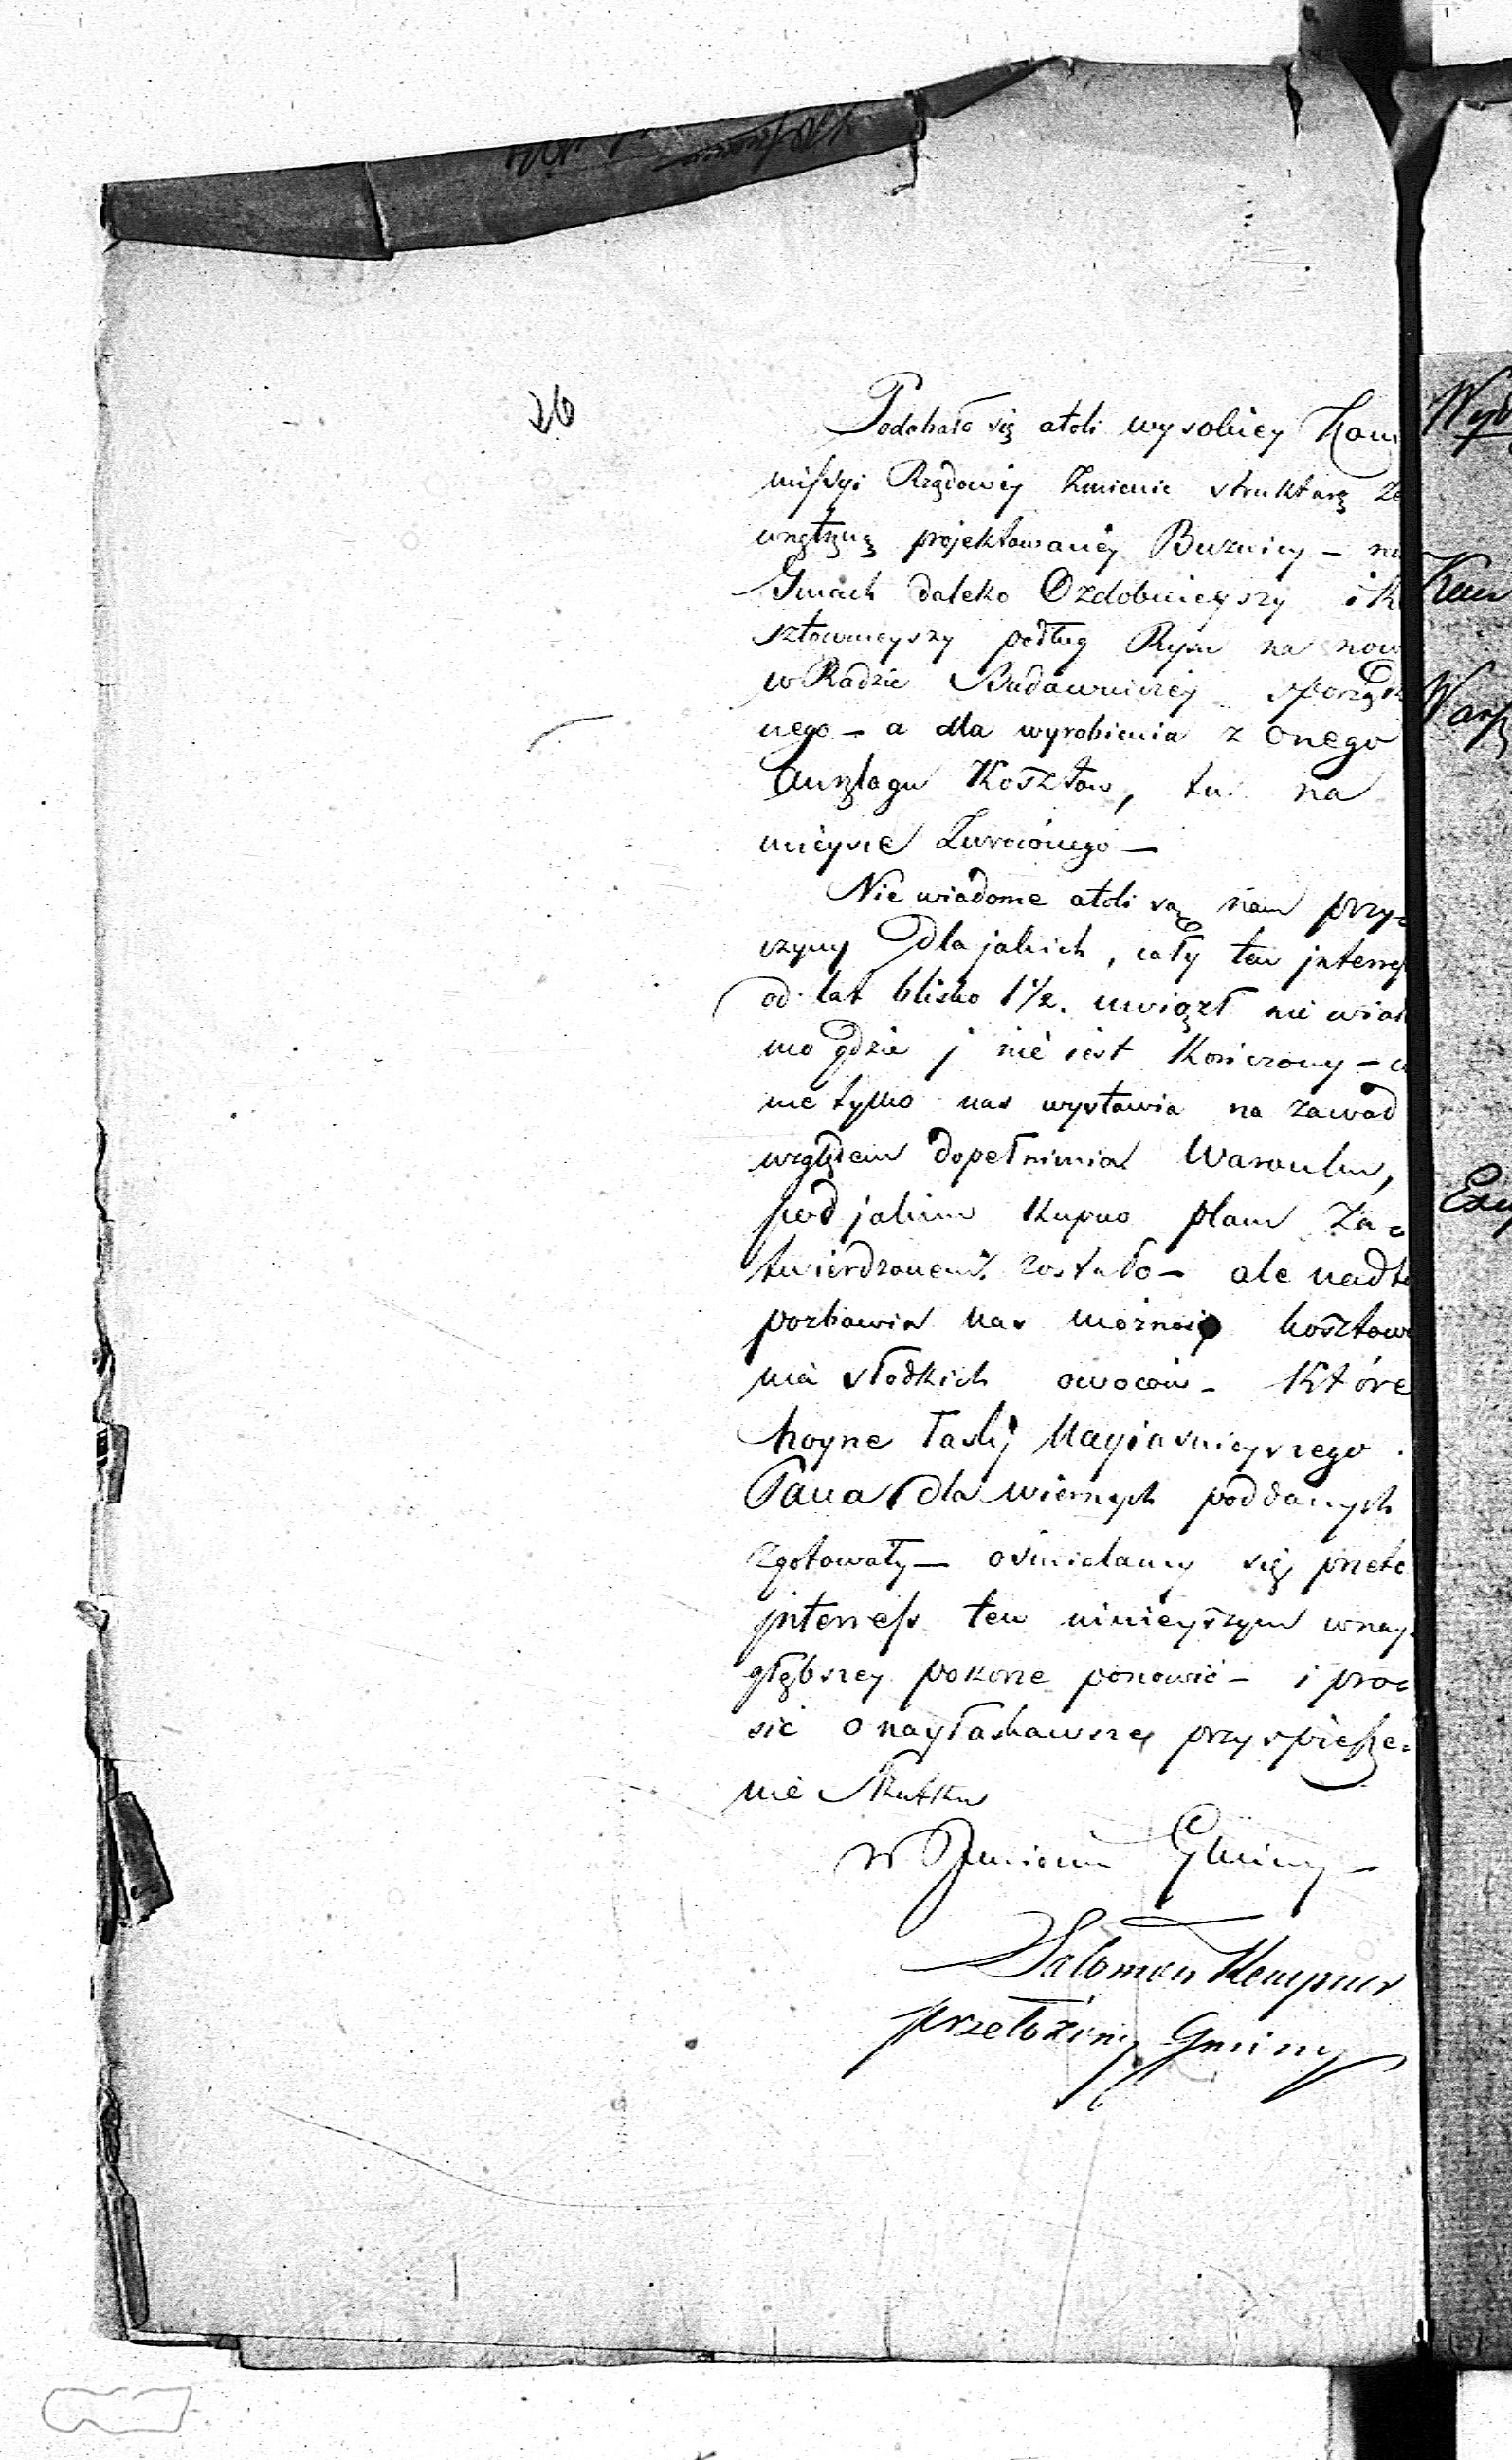 26
Podobało się atoli wysokiey Kom
missyi Rządowéy zmienić strukturę Ze
wnętrzną projektowanéy Buznicy – na
Gmach daleko Ozdobnieyszy i k
sztownieyszy podług Rysu na now
w Radzie Budowniczéy sporządz
nego – a dla wyrobienia z onego
Anszlagu Kosztow, tu na
mieysce Zwróconego –
Nie wiadome atoli są nam przy-
czyny dla jakich, cały ten interes
od lat blisko 1½. uwiązł nie wiad
mo gdzie j nie iest Kończony – c
nie tylko nas wystawia na zawad
względem dopełnienia Warunku,
pod jakim Kupno placu Za-
twierdzonem zostało – ale nadto
pozbawia nas możności kosztowa
nia słodkich owoców – Które
hoyne łaski Nayiasnieyszego
Pana dla wiernych poddanych
zgotowały – ośmielamy się przeto
interess ten ninieyszym w nay-
głębszey pokorze ponowić – i pro-
sić o nayłaskawsze przyspiesze-
nie Skutku
w Imieniu Gminy –
Salomon Kempner
przełożony Gminy
Wyd